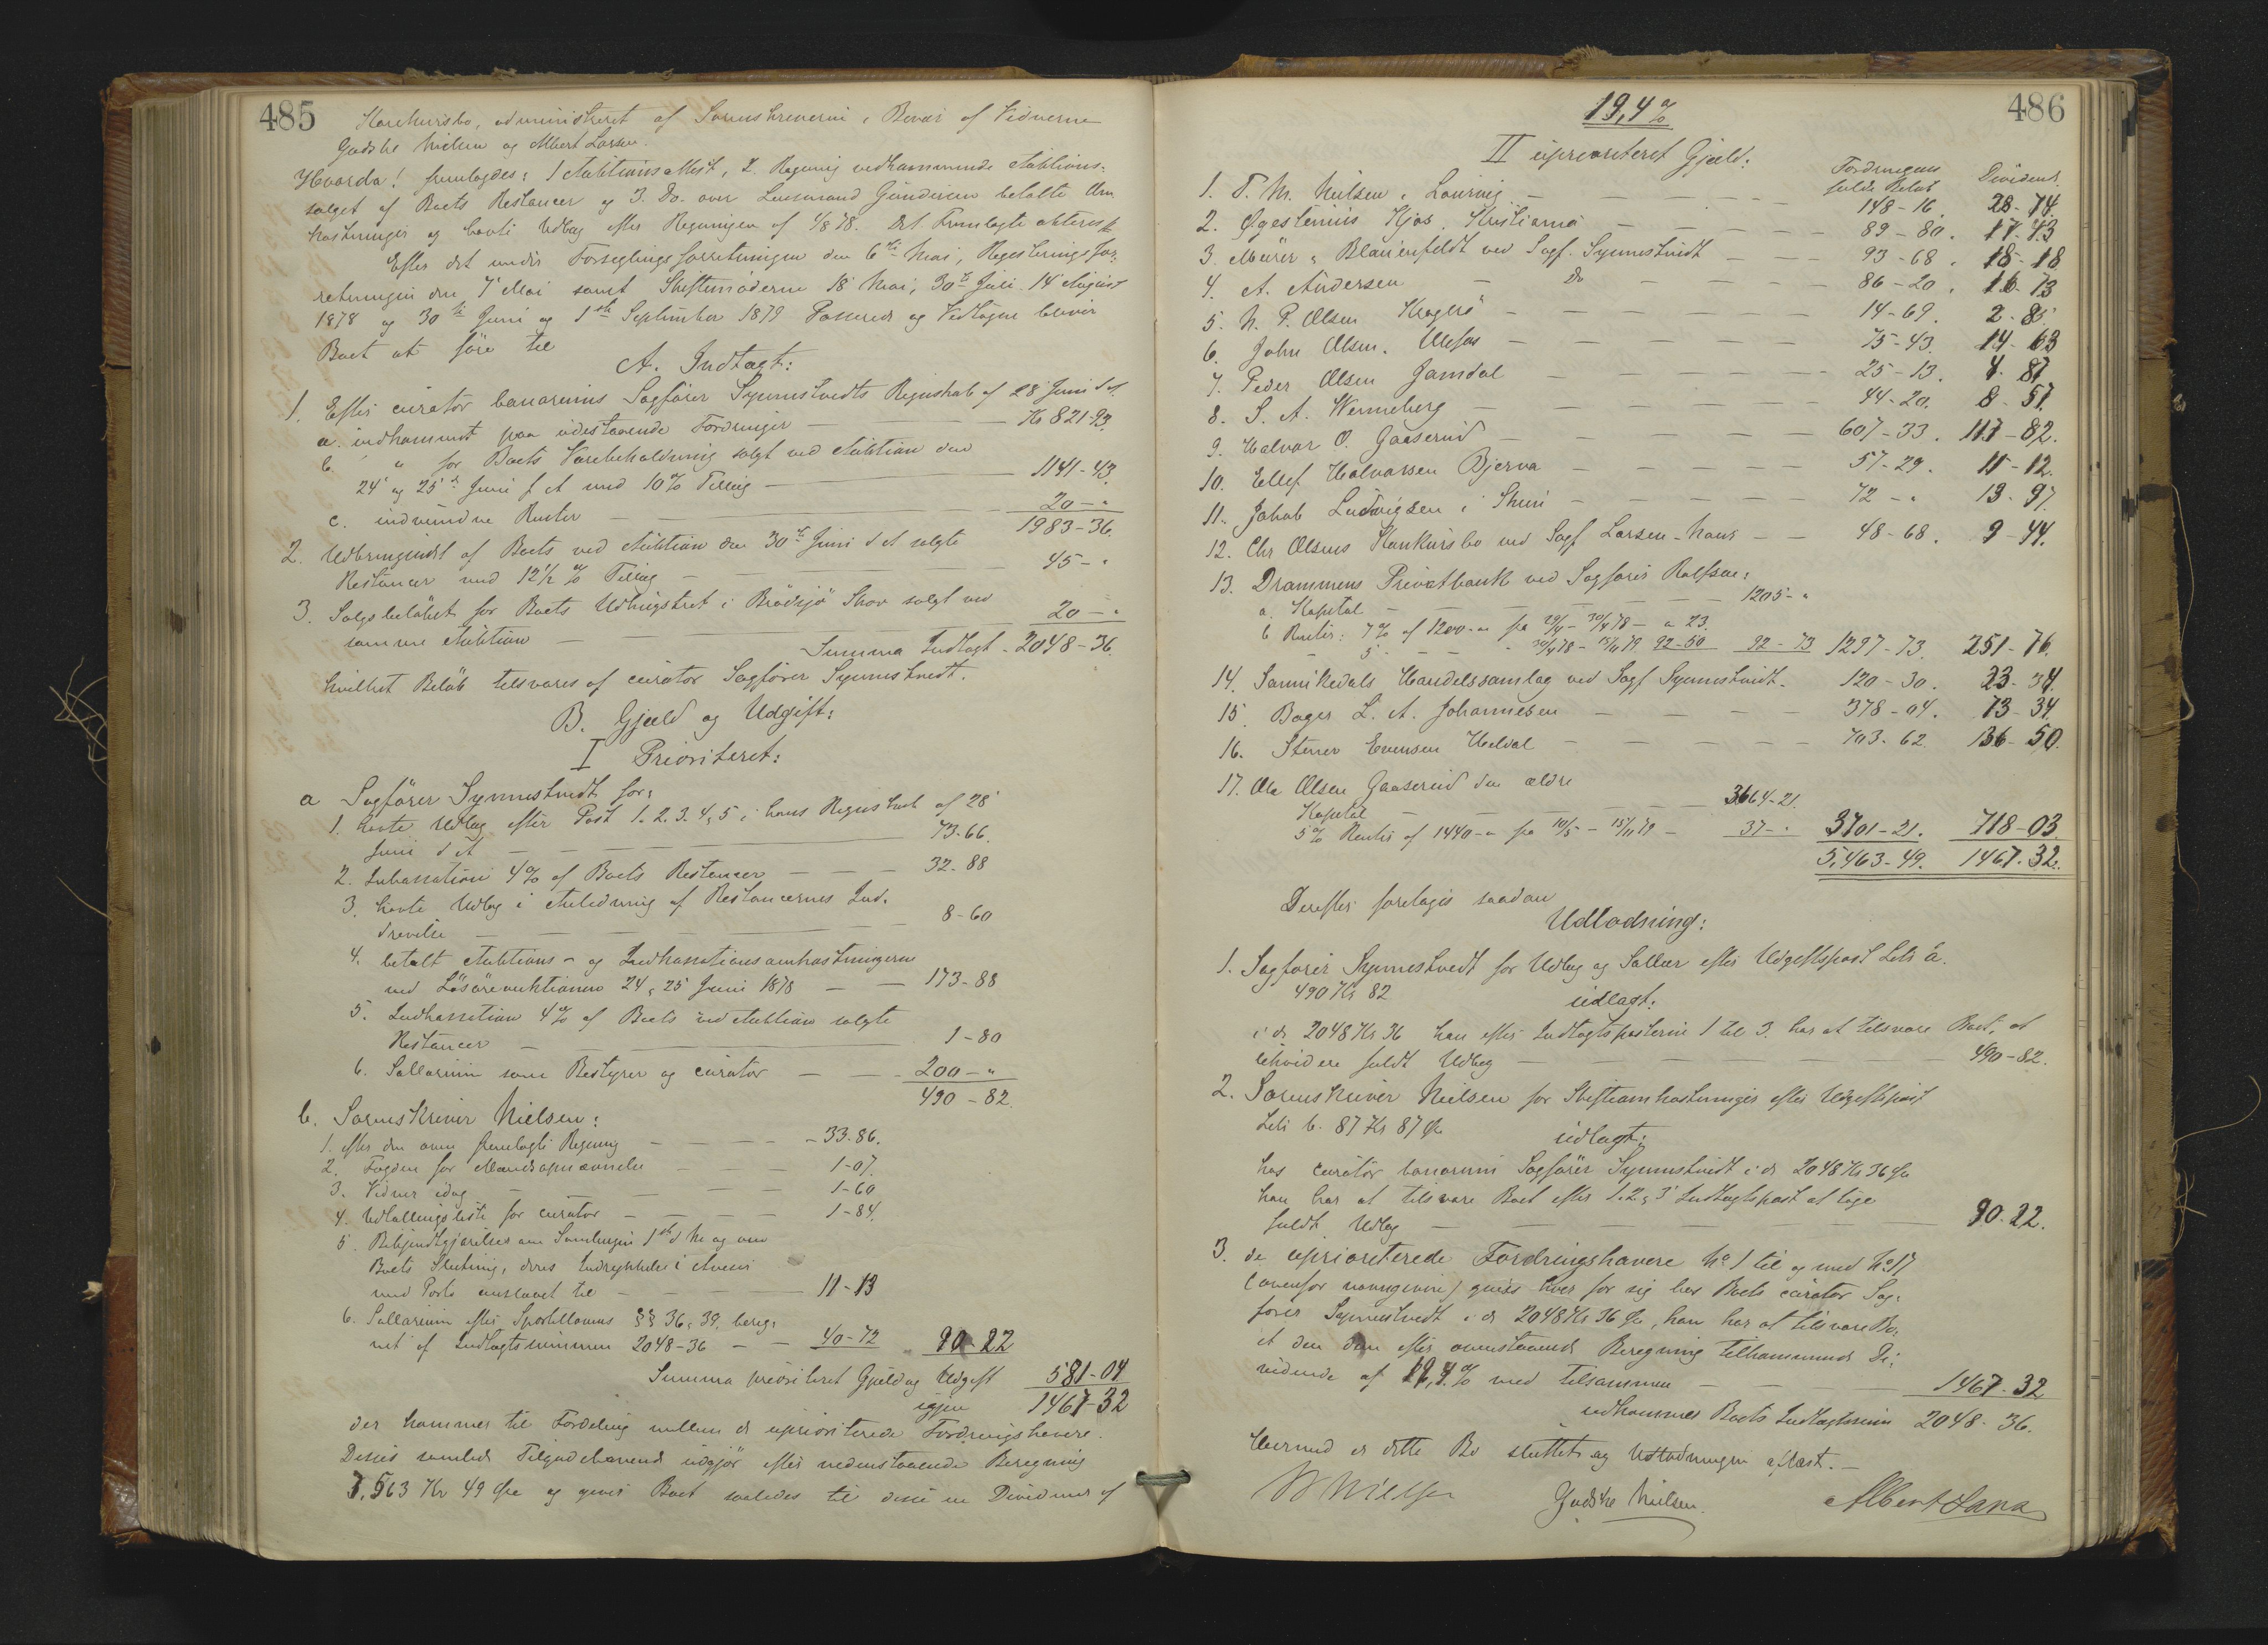 485
Konkursbo, administreret af Sorenskriveren i Bevær af Vidnerne
Gudske Nielsen og Albert Larsen.
Hvorda! fremlagdes: 1 Auktions Akt, 2. Regning vedkommende Auktions-
salget af Boets Restancer og 3. Do. over Lensmand Gundersen betalte Om
kostninger og havte Udlæg efter Regningen af 1/8 78. Det Fremlagte
Efter det under Forseglingsforretningen den 6te Mai, Registreringsfor-
retningen den 7' Mai samt Skiftemöderne 18' Mai, 30te Juli 14' August
1878 og 30te Juni og 1ste September 1879 Passerede og Vedtagne bliver
Boet at före til
A. Indtægt:
1. Efter curator bonorums Sagförer Synnestvedts Regnskab af 28' Juni d A.
a. indkommet paa udestaaende Fordringer — Kr 821-93.
b. " for Boets Varebeholdning solgt ved Auktion den
24' og 25de Juni f A med 10% Tillæg — 1141-43.
c. indvundne Renter — 20-"
1983-36.
2. Udbringendet af Boets ved Auktion den 30te Juni d A solgte
Restancer med 12½ % Tillæg — 45-"
3. Salgsbelöbet for Boets Udhugstret i Skov solgt ved
samme Auktion — 20-"
Summa Indtægt - 2048-36.
hvilket Belöb tilsvares af curator Sagförer Synnestvedt.
B. Gjæld og Udgift:
I Prioriteret:
a Sagförer Synnestvedt for:
1. havte Udlæg efter Post 1. 2. 3. 4, 5 i hans Regnskab af 28'
Juni d A — 73-66.
2. Inkassation 4% af Boets Restancer — 32-88
3. havte Udlæg i Anledning af Restancernes Ind-
drivelse — 8-60
4. betalt Auktions- og Indkassationsomkostningerne
ved Lösöreauktionen 24 & 25' Juni 1878 — 173-88
5. Indkassation 4% af Boets ved Auktion solgte
Restancer — 1-80
6. Sallarium som Bestyrer og curator — 200-"
490-82.
b. Sorenskriver Nielsen:
1. efter den oven fremlagte Regning — 33-86.
2. Fogden for Mandsopnævnelse — 1-07.
3. Vidner idag — 1-60
4. Udlodningsliste for curator — 1-84.
5. Bekjendtgjörelser om Samlingen 1ste d M og om
Boets Slutning, deres Indrykkelse i Avisen
med Porto anslaaet til — 11-13
6. Sallarium efter Sportellovens §§ 36 & 39, bereg-
net af Indtægtssummen 2048-36 — 40-72 90-22
Summa prioriteret Gjæld og Udgift 581-04
igjen 1467-32
der kommer til Fordeling mellem de uprioriterede Fordringshavere.
Disses samlede Tilgodehavende udgjör efter nedenstaaende Beregning
7,563 Kr 49 Öre og giver Boet saaledes til disse en Dividende af
486
19,4%
II uprioriteret Gjæld:
Fordringens fulde Belöb Dividende
1. T. M. Nielsen i Laurvig — 148-16. 28-74.
2. Ögestenius Hjos, Kristiania — 89-80. 17-43
3. Meürer & Blauenfeldt ved Sagf. Synnestvedt — 93-68. 18-18
4. A. Andersen — Do — 86-20. 16-73
5. N. P. Olsen Kragerö — 14-69. 2-85
6. John Olsen, Ulefos — 75-43. 14-63
7. Peder Olsen Jamdal — 25-13. 4-87
8. S. A. Wenneberg — 44-20. 8-57.
9. Halvor O. Gaaserud — 607-33. 117-82.
10. Ellef Halvorsen Bjerva — 57-29. 11-12.
11. Jakob Ludvigsen i Skien — 72-" 13-97
12. Chr Olsens Konkursbo ved Sagf Larsen-Næss — 48-68. 9-44.
13. Drammens Privatbank ved Sagförer Rolfsen:
a. Kapital — 1205-"
b Renter: 7% af 1200-" fra 29/4 - 30/4 78 — " 23.
5 — 30/4 78 - 15/11 79 92-50 92-73 1297-73. 251-76.
14. Sannikedals Handelssamlag ved Sagf Synnestvedt. 120-30. 23-34.
15. Bager L. A. Johannesen — 378-04. 73-34
16. Stener Evensen Heldal — 703-62. 136-50.
17. Ole Olsen Gaaserud den ældre
Kapital — 3664-21.
5% Renter af 1440-" fra 10/5 - 15/11 79 — 37-" 3701-21. 718-03.
5,463-49. 1467-32.
Derefter foretoges saadan
Udlodning:
1. Sagförer Synnestvedt for Udlæg og Sallær efter Udgiftspost Litr a.
490 Kr 82 udlagt:
i de 2048 Kr 36 han efter Indtægtsposterne 1 til 3. har at tilsvare Boet, at
likvidere fuldt Udlæg — 490-82.
2. Sorenskriver Nielsen for Skifteomkostninger efter Udgiftspost
Litr b. 87 Kr 87 Öre udlagt:
hos curator bonorum Sagförer Synnestvedt i de 2048 Kr 36 Öre
han har at tilsvare Boet efter 1. 2 & 3' Indtægtspost at tage
fuldt Udlæg — 90-22.
3. de uprioriterede Fordringshavere No 1 til og med No 17
(ovenfor navngivne) gives hver for sig hos Boets curator Sag-
förer Synnestvedt i de 2048 Kr 36 Öre, han har at tilsvare Bo-
et den dem efter ovenstaaende Beregning tilkommende Di-
vidende af 19,4 % med tilsammen — 1467-32
udkommer Boets Indtægtssum 2048-36.
Hermed er dette Bo sluttet og Udlodningen aflæst. —
Nielsen Gudske Nielsen. Albert Larsen